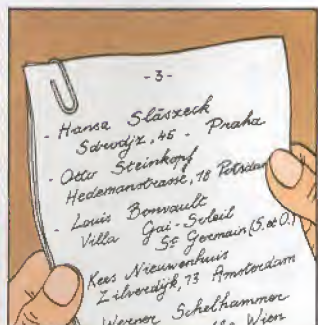 - 3 -
- Hansa Slászeck
Sdrvodjz, 45 - Praha
- Otto Steinkopf
Hedemanstrasse, 18 Potsdam
- Louis Bonvault
Villa Gai-Soleil
St Germain (S. et O.)
Kees Nieuwenhuis
Zilverdijk, 73 Amsterdam
Werner Schelhammer
Wien